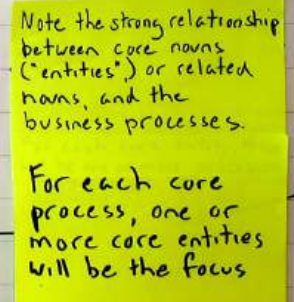 Note the strong relationship
between core nouns
("entities") or related
nouns, and the
business processes.
For each core
process, one or
more core entities
will be the focus